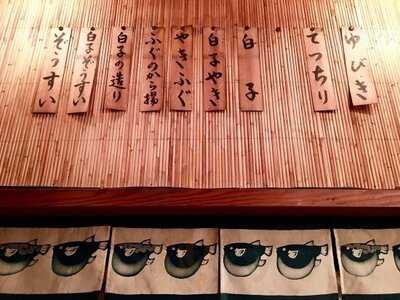 ゆびき
てっちり
白子
白子やき
やきふぐ
ふぐのから揚
白子の造り
白子ぞうすい
ぞうすい